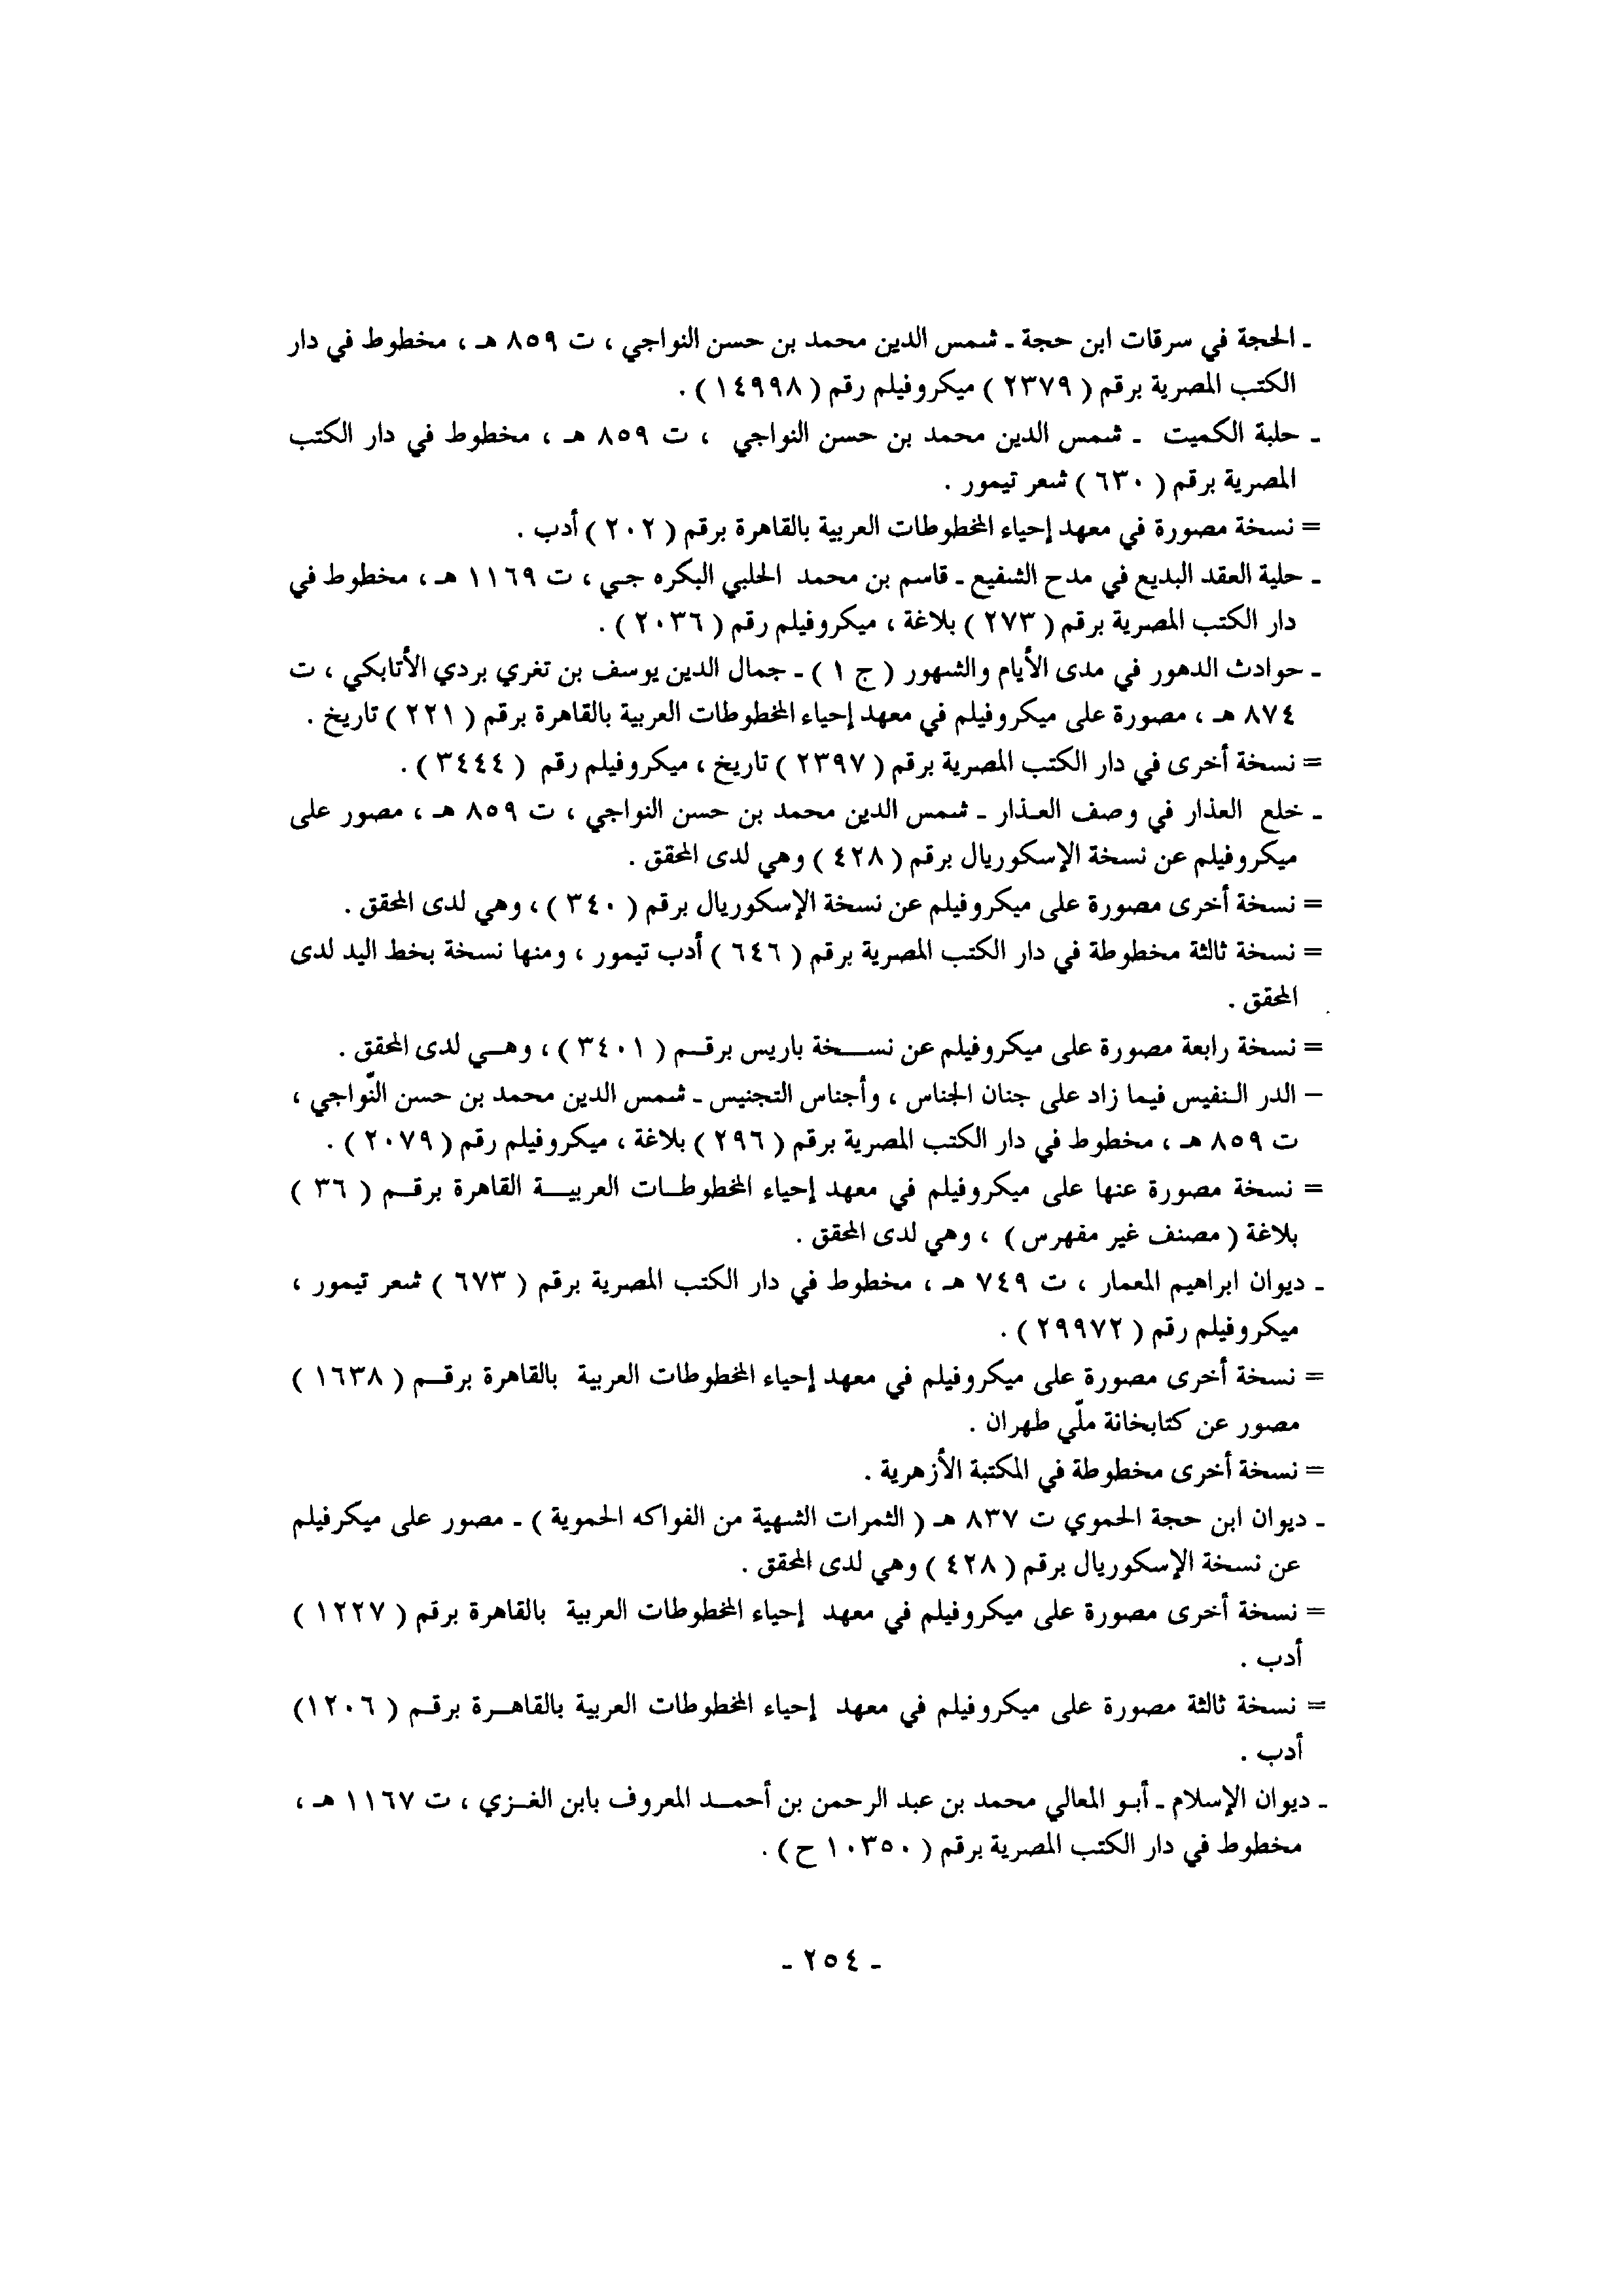 ـ الحجة في سرقات ابن حجة ـ شمس الدين محمد بن حسن النواجي ، ت ٨٥٩ هـ ، مخطوط في دار
الكتب المصرية برقم ( ٢٣٧٩ ) ميكروفيلم رقم ( ١٤٩٩٨ ) .
ـ حلبة الكميت ـ شمس الدين محمد بن حسن النواجي ، ت ٨٥٩ هـ ، مخطوط في دار الكتب
المصرية برقم ( ٦٣٠ ) شعر تيمور .
= نسخة مصورة في معهد إحياء المخطوطات العربية بالقاهرة برقم ( ٢٠٢ ) أدب .
ـ حلية العقد البديع في مدح الشفيع ـ قاسم بن محمد الحلبي البكره جي ، ت ١١٦٩ هـ ، مخطوط في
دار الكتب المصرية برقم ( ٢٧٣ ) بلاغة ، ميكروفيلم رقم ( ٢٠٣٦ ) .
ـ حوادث الدهور في مدى الأيام والشهور ( ج ١ ) ـ جمال الدين يوسف بن تغري بردي الأتابكي ، ت
٨٧٤ هـ ، مصورة على ميكروفيلم في معهد إحياء المخطوطات العربية بالقاهرة برقم ( ٢٢١ ) تاريخ .
= نسخة أخرى في دار الكتب المصرية برقم ( ٢٣٩٧ ) تاريخ ، ميكروفيلم رقم ( ٣٤٤٤ ) .
ـ خلع العذار في وصف العـذار ـ شمس الدين محمد بن حسن النواجي ، ت ٨٥٩ هـ ، مصور على
ميكروفيلم عن نسخة الإسكوريال برقم ( ٤٢٨ ) وهي لدى المحقق .
= نسخة أخرى مصورة على ميكروفيلم عن نسخة الإسكوريال برقم ( ٣٤٠ ) ، وهي لدى المحقق .
= نسخة ثالثة مخطوطة في دار الكتب المصرية برقم ( ٦٤٦ ) أدب تيمور ، ومنها نسخة بخط اليد لدى
المحقق .
= نسخة رابعة مصورة على ميكروفيلم عن نســخة باريس برقــم ( ٣٤٠١ ) ، وهــي لدى المحقق .
– الدر الـنفيس فيما زاد على جنان الجناس ، وأجناس التجنيس ـ شمس الدين محمد بن حسن النّواجي ،
ت ٨٥٩ هـ ، مخطوط في دار الكتب المصرية برقم ( ٢٩٦ ) بلاغة ، ميكروفيلم رقم ( ٢٠٧٩ ) .
= نسخة مصورة عنها على ميكروفيلم في معهد إحياء المخطوطـات العربيــة القاهرة برقــم ( ٣٦ )
بلاغة ( مصنف غير مفهرس ) ، وهي لدى المحقق .
ـ ديوان ابراهيم المعمار ، ت ٧٤٩ هـ ، مخطوط في دار الكتب المصرية برقم ( ٦٧٣ ) شعر تيمور ،
ميكروفيلم رقم ( ٢٩٩٧٢ ) .
= نسخة أخرى مصورة على ميكروفيلم في معهد إحياء المخطوطات العربية بالقاهرة برقــم ( ١٦٣٨ )
مصور عن كتابخانة ملّي طهران .
= نسخة أخرى مخطوطة في المكتبة الأزهرية .
ـ ديوان ابن حجة الحموي ت ٨٣٧ هـ ( الثمرات الشهية من الفواكه الحموية ) ـ مصور على ميكرفيلم
عن نسخة الإسكوريال برقم ( ٤٢٨ ) وهي لدى المحقق .
= نسخة أخرى مصورة على ميكروفيلم في معهد إحياء المخطوطات العربية بالقاهرة برقم ( ١٢٢٧ )
أدب .
= نسخة ثالثة مصورة على ميكروفيلم في معهد إحياء المخطوطات العربية بالقاهــرة برقـم ( ١٢٠٦)
أدب .
ـ ديوان الإسلام ـ أبـو المعالي محمد بن عبد الرحمن بن أحمــد المعروف بابن الغــزي ، ت ١١٦٧ هـ ،
مخطوط في دار الكتب المصرية برقم ( ١٠٣٥٠ ح ) .
ـ ٢٥٤ ـ